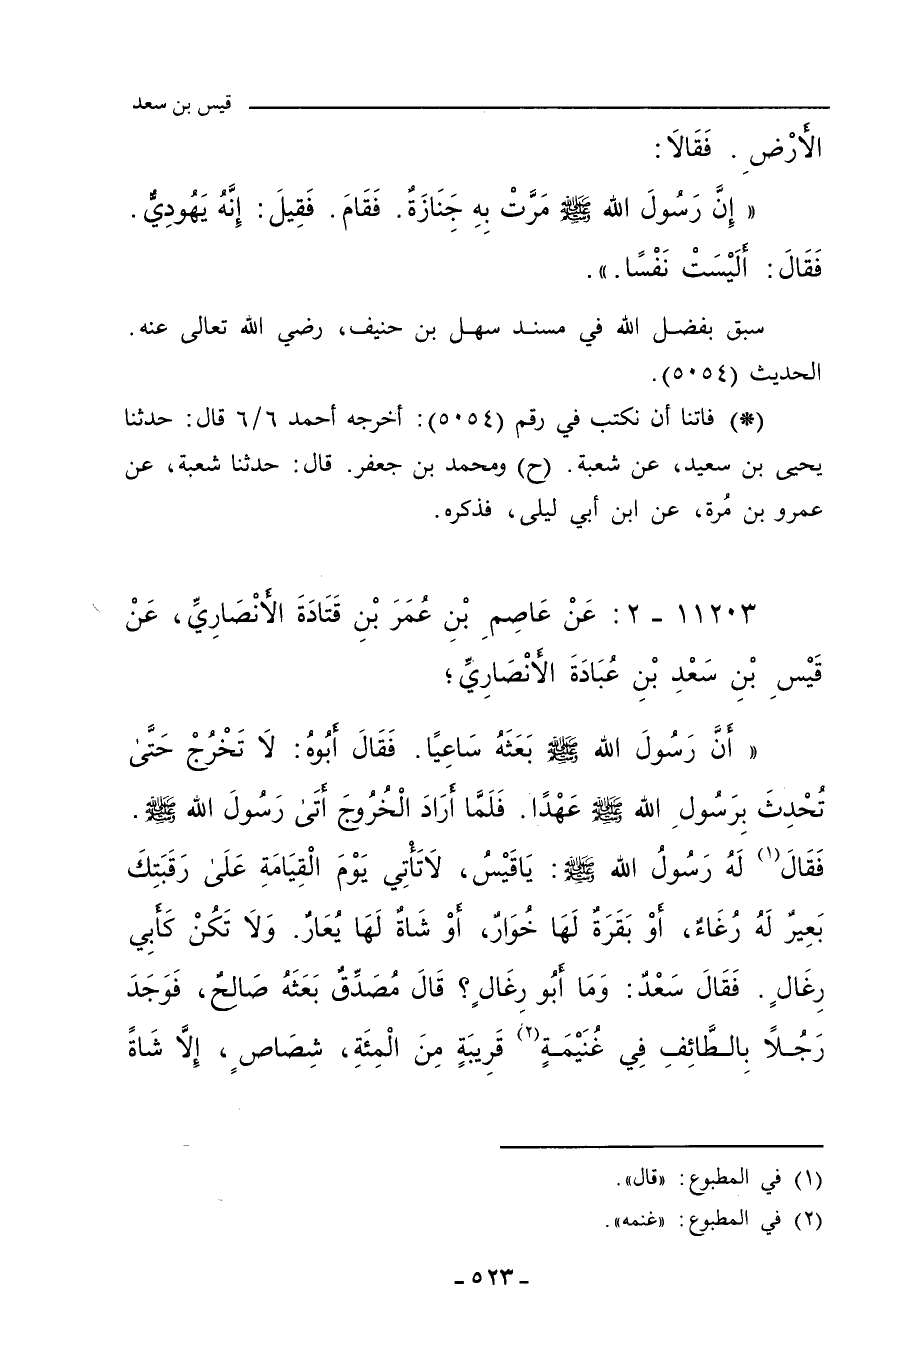 قيس بن سعد
الأَرْضِ. فَقَالَا:
« إِنَّ رَسُولَ الله ﷺ مَرَّتْ بِهِ جَنَازَةٌ. فَقَامَ. فَقِيلَ: إِنَّهُ يَهُودِيٌّ.
فَقَالَ: أَلَيْسَتْ نَفْسًا.».
سبق بفضل الله في مسند سهل بن حنيف، رضي الله تعالى عنه.
الحديث (٥٠٥٤).
(*) فاتنا أن نكتب في رقم (٥٠٥٤): أخرجه أحمد ٦/٦ قال: حدثنا
يحيى بن سعيد، عن شعبة. (ح) ومحمد بن جعفر. قال: حدثنا شعبة، عن
عمرو بن مُرة، عن ابن أبي ليلى، فذكره.
١١٢٠٣ - ٢: عَنْ عَاصِمِ بْنِ عُمَرَ بْنِ قَتَادَةَ الأَنْصَارِيِّ، عَنْ
قَيْسِ بْنِ سَعْدِ بْنِ عُبَادَةَ الأَنْصَارِيِّ؛
« أَنَّ رَسُولَ الله ﷺ بَعَثَهُ سَاعِيًا. فَقَالَ أَبُوهُ: لَا تَخْرُجْ حَتَّىٰ
تُحْدِثَ بِرَسُولِ الله ﷺ عَهْدًا. فَلَمَّا أَرَادَ الْخُرُوجَ أَتَىٰ رَسُولَ الله ﷺ.
فَقَالَ(١) لَهُ رَسُولُ الله ﷺ: يَاقَيْسُ، لَاتَأْتِي يَوْمَ الْقِيَامَةِ عَلَىٰ رَقَبَتِكَ
بَعِيرٌ لَهُ رُغَاءٌ، أَوْ بَقَرَةٌ لَهَا خُوَارٌ، أَوْ شَاةٌ لَهَا يُعَارٌ. وَلَا تَكُنْ كَأَبِي
رِغَالٍ. فَقَالَ سَعْدٌ: وَمَا أَبُو رِغَالٍ؟ قَالَ مُصَدِّقٌ بَعَثَهُ صَالِحٌ، فَوَجَدَ
رَجُلاً بِالطَّائِفِ فِي غُنَيْمَةٍ(٢) قَرِيبَةٍ مِنَ الْمِئَةِ، شِصَاصٍ، إِلَّا شَاةً
(١) في المطبوع: «قال».
(٢) في المطبوع: «غنمه».
- ٥٢٣ -